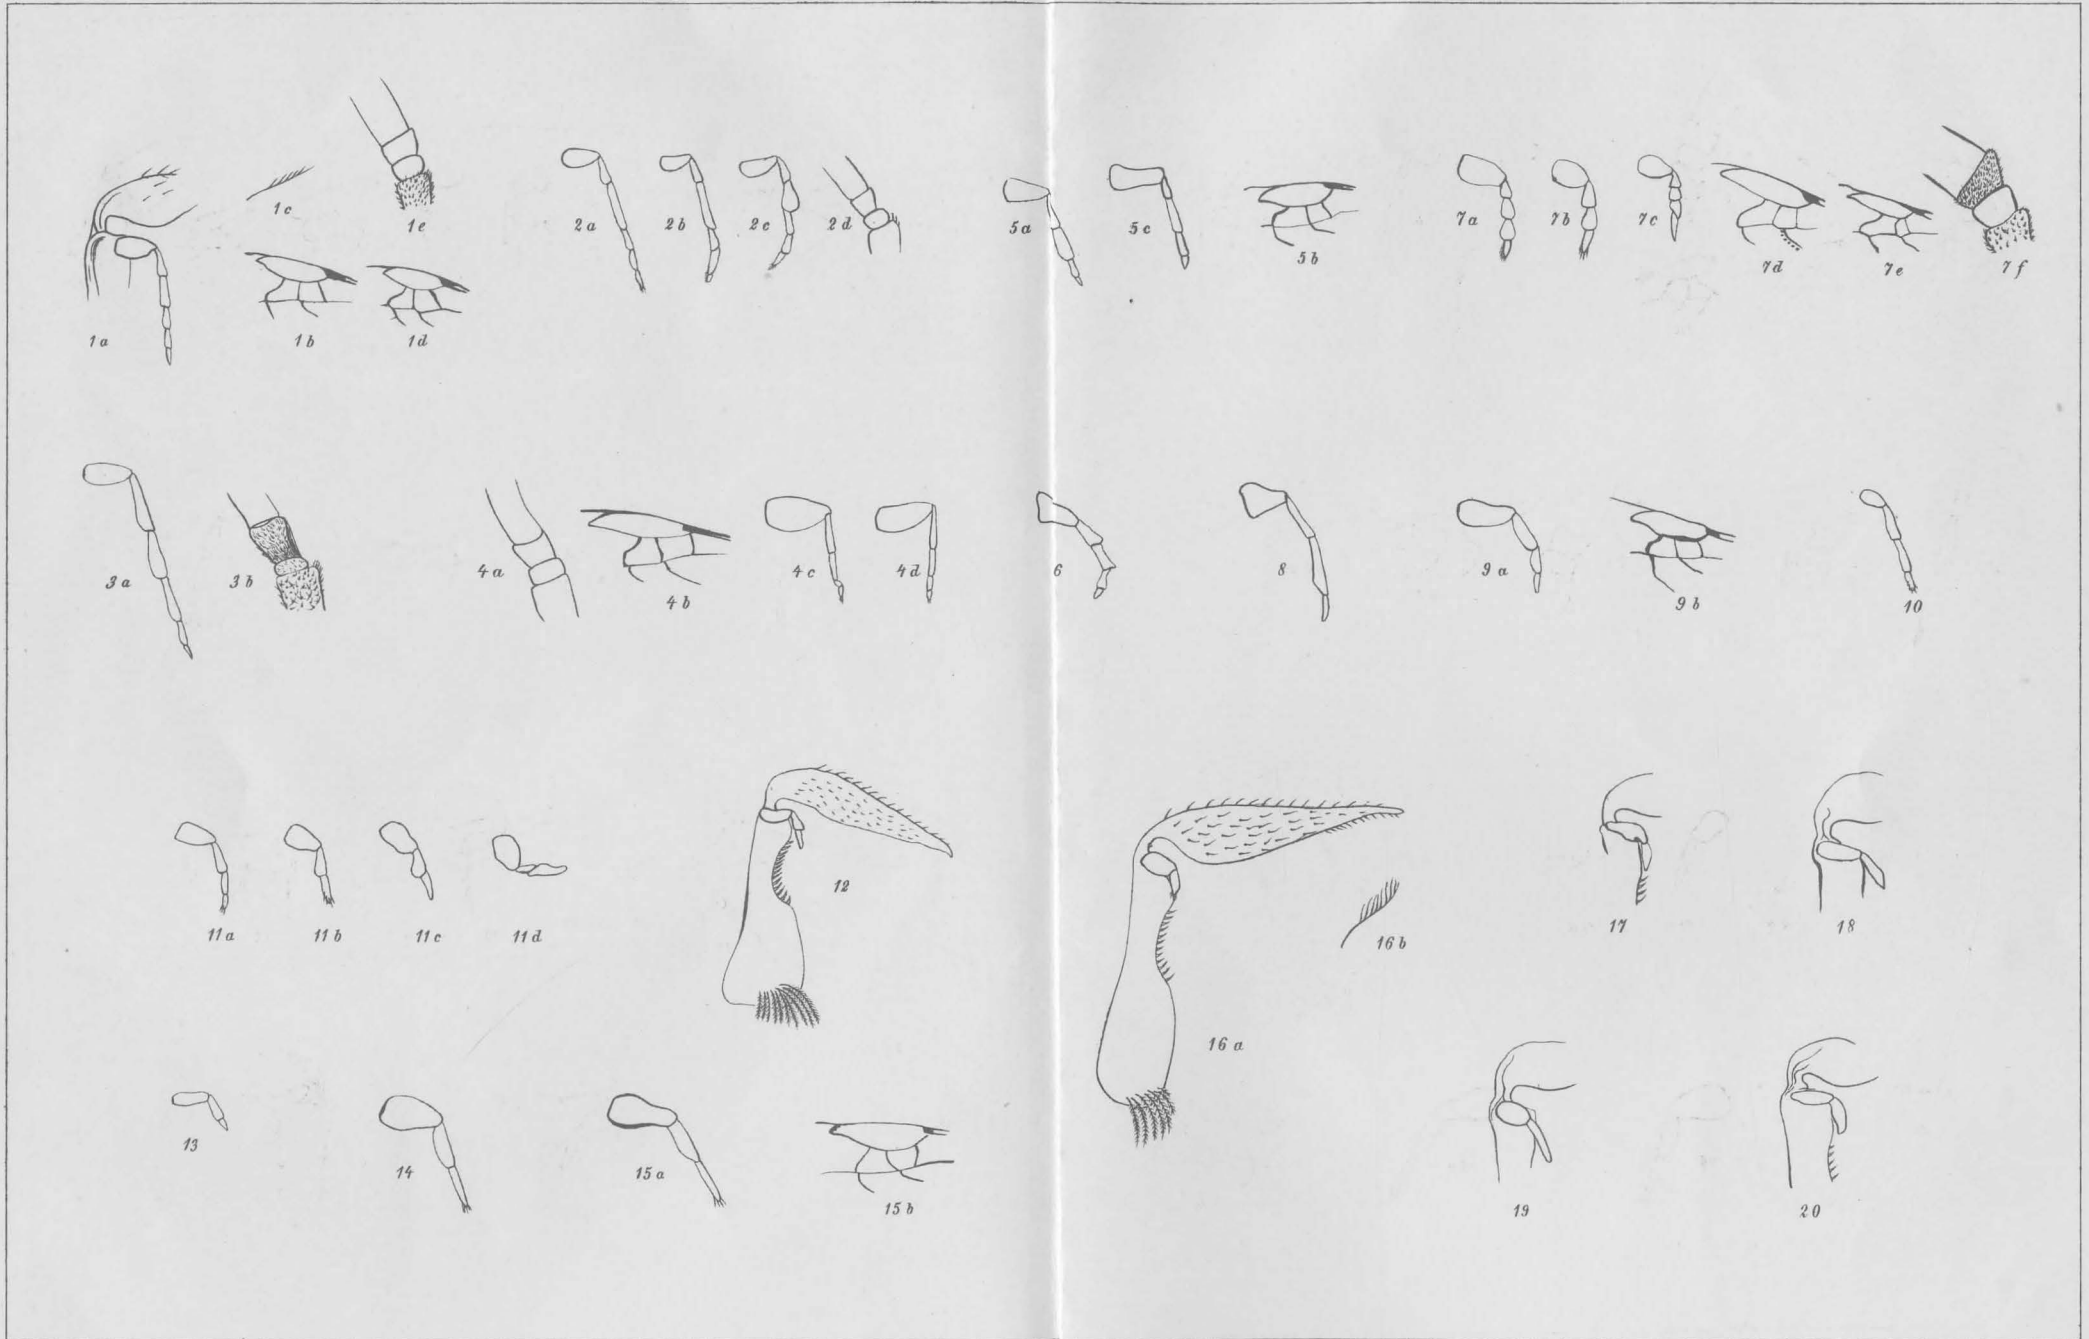 1c
1e
2a
2b
2c
2d
5a
5c
5b
7a
7b
7c
7d
7e
7f
1a
1b
1d
3a
3b
4a
4b
4c
4d
6
8
9a
9b
10
11a
11b
11c
11d
12
16b
17
18
16a
13
14
15a
15b
19
20